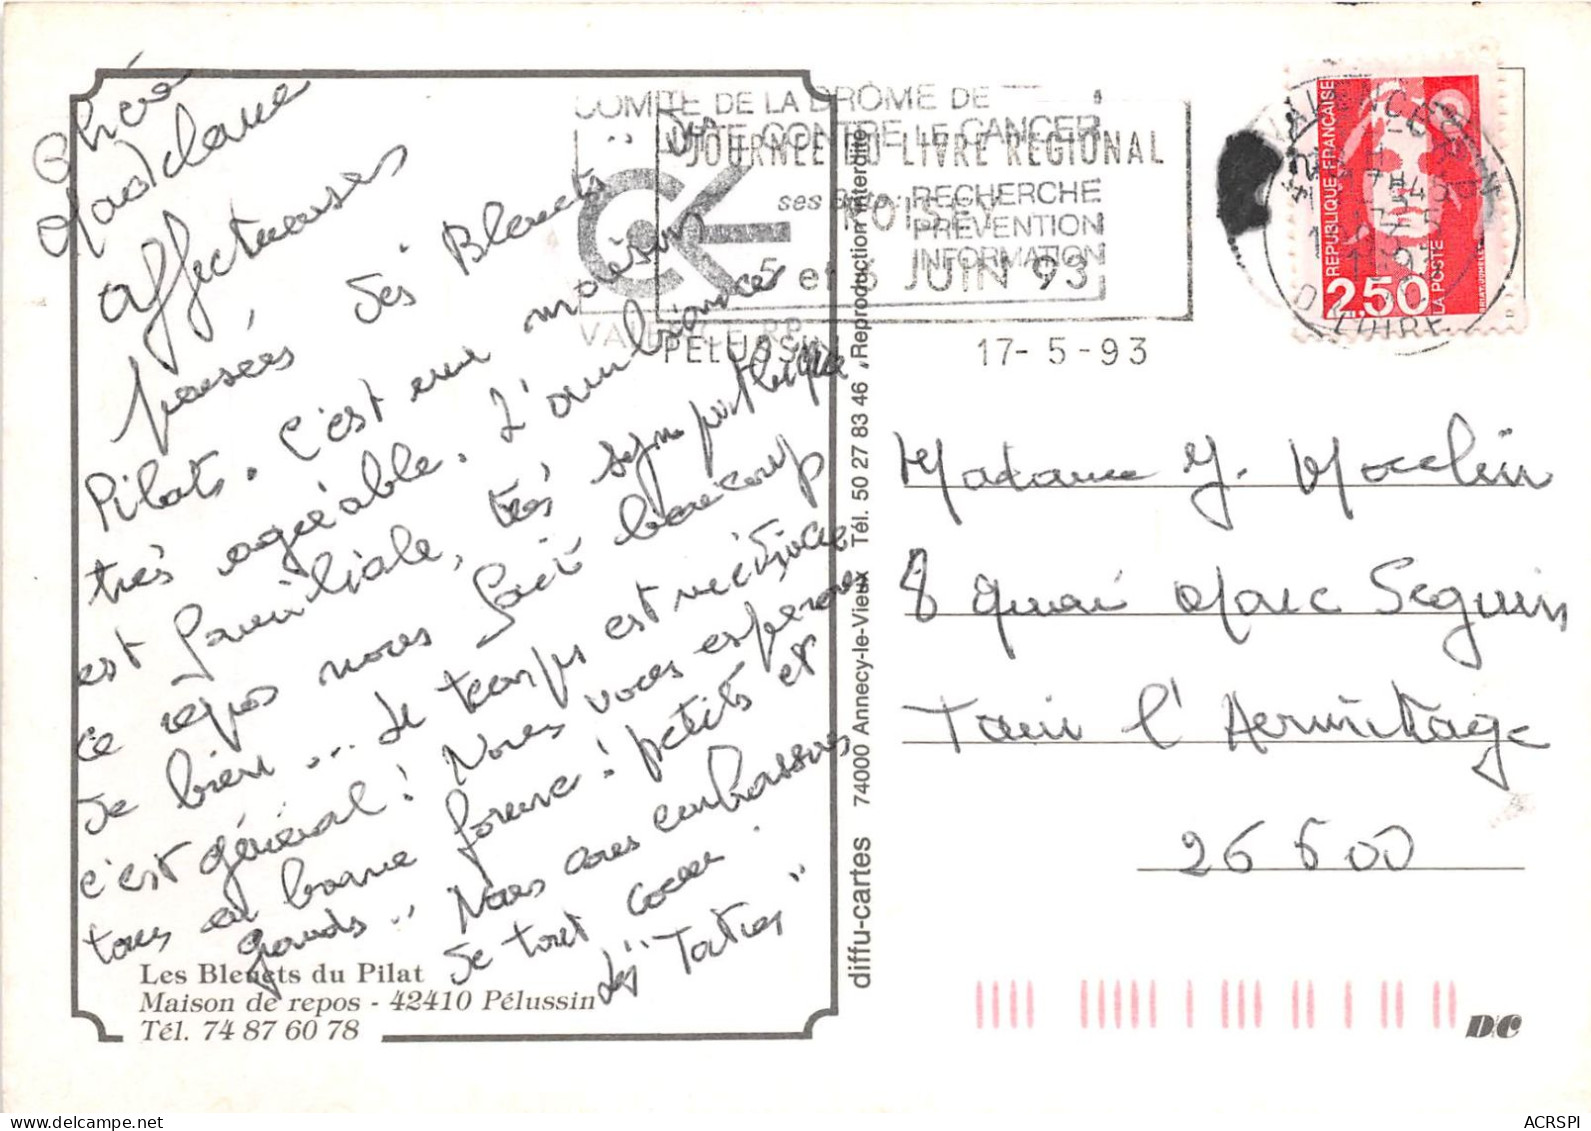 Chère
Madame
affectueuses
pensées des Bleuets du
Pilat. C'est une maison
très agréable. L'ambiance
est familiale, très sympathique
ce repos nous fait beaucoup
de bien... le temps est
c'est général! Nous vous esperons
tous en bonne forme! petits et
grands.. Nous vous embrassons
de tout coeur.
Les "Taties"
Les Bleuets du Pilat
Maison de repos - 42410 Pélussin
Tél. 74 87 60 78
diffu-cartes 74000 Annecy-le-Vieux Tél. 50 27 83 46 Reproduction interdite
COMITE DE LA DROME DE
LUTTE CONTRE LE CANCER
ses buts: RECHERCHE
PRÉVENTION
INFORMATION
VALENCE RP
JOURNEE DU LIVRE REGIONAL
5 et 6 JUIN 93
PELUSSIN 17-5-93
REPUBLIQUE FRANÇAISE
2,50
LA POSTE
Madame
8 quai Marc Seguin
Tain l'Hermitage
26600
D/C
ACRSPI